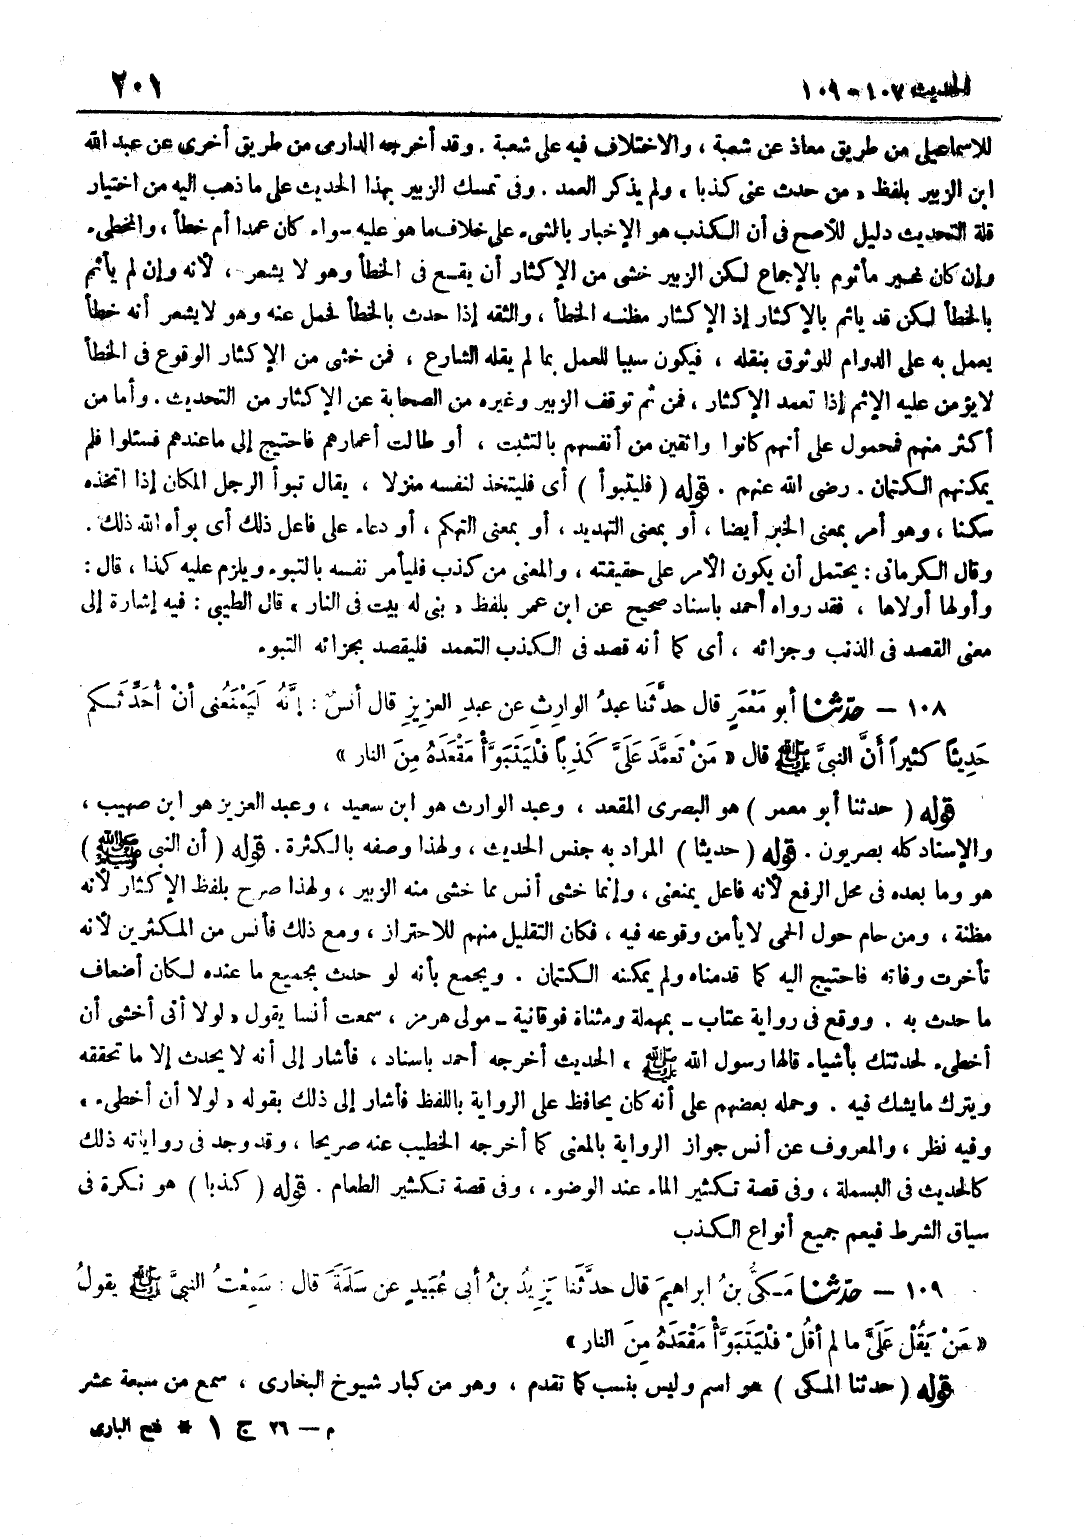 الحديث ١٠٧ - ١٠٩
٢٠١
للاسماعيلى من طريق معاذ عن شعبة ، والاختلاف فيه على شعبة . وقد أخرجه الدارمى من طريق أخرى عن عبد الله
ابن الزبير بلفظ « من حدث عنى كذبا » ولم يذكر العمد . وفى تمسك الزبير بهذا الحديث على ما ذهب اليه من اختيار
قلة التحديث دليل للأصح فى أن الكذب هو الإخبار بالشىء على خلاف ما هو عليه سواء كان عمدا أم خطأ ، والمخطىء
وإن كان غير مأثوم بالإجماع لكن الزبير خشى من الإكثار أن يقع فى الخطأ وهو لا يشعر ، لأنه وإن لم يأثم
بالخطأ لكن قد يأثم بالإكثار إذ الإكثار مظنه الخطأ ، والثقه إذا حدث بالخطأ فحمل عنه وهو لا يشعر أنه خطأ
يعمل به على الدوام للوثوق بنقله ، فيكون سببا للعمل بما لم يقله الشارع ، فمن خشى من الإكثار الوقوع فى الخطأ
لا يؤمن عليه الإثم إذا تعمد الإكثار ، فمن ثم توقف الزبير وغيره من الصحابة عن الإكثار من التحديث . وأما من
أكثر منهم فمحمول على أنهم كانوا واثقين من أنفسهم بالتثبت ، أو طالت أعمارهم فاحتيج إلى ما عندهم فسئلوا فلم
يمكنهم الكتمان . رضى الله عنهم . قوله ( فليتبوأ ) أى فليتخذ لنفسه منزلا ، يقال تبوأ الرجل المكان إذا اتخذه
سكنا ، وهو أمر بمعنى الخبر أيضا ، أو بمعنى التهديد ، أو بمعنى التهكم ، أو دعاء على فاعل ذلك أى بوأه الله ذلك .
وقال الكرمانى : يحتمل أن يكون الأمر على حقيقته ، والمعنى من كذب فليأمر نفسه بالتبوء ويلزم عليه كذا ، قال :
وأولها أولاها ، فقد رواه أحمد باسناد صحيح عن ابن عمر بلفظ « بنى له بيت فى النار » قال الطيبى : فيه إشارة إلى
معنى القصد فى الذنب وجزائه ، أى كما أنه قصد فى الكذب التعمد فليقصد بجزائه التبوء
١٠٨ — حدّثنا أبو مَعْمَرٍ قال حدَّثَنا عبدُ الوارِثِ عن عبدِ العزيزِ قال أنسٌ : إنَّهُ لَيَمْنَعُنى أنْ أُحَدِّثَكم
حَدِيثاً كثيراً أنَّ النبىَّ ﷺ قال « مَنْ تَعمَّدَ عَلَىَّ كَذِباً فَلْيَتَبَوَّأْ مَقْعَدَهُ مِنَ النار »
قوله ( حدثنا أبو معمر ) هو البصرى المقعد ، وعبد الوارث هو ابن سعيد ، وعبد العزيز هو ابن صهيب ،
والإسناد كله بصريون . قوله ( حديثا ) المراد به جنس الحديث ، ولهذا وصفه بالكثرة . قوله ( أن النبى ﷺ )
هو وما بعده فى محل الرفع لأنه فاعل يمنعنى ، وإنما خشى أنس مما خشى منه الزبير ، ولهذا صرح بلفظ الإكثار لأنه
مظنة ، ومن حام حول الحمى لا يأمن وقوعه فيه ، فكان التقليل منهم للاحتراز ، ومع ذلك فأنس من المكثرين لأنه
تأخرت وفاته فاحتيج اليه كما قدمناه ولم يمكنه الكتمان . ويجمع بأنه لو حدث بجميع ما عنده لكان أضعاف
ما حدث به . ووقع فى رواية عتاب ـ بمهملة ومثناة فوقانية ـ مولى هرمز ، سمعت أنسا يقول « لولا أنى أخشى أن
أخطىء لحدثتك بأشياء قالها رسول الله ﷺ » الحديث أخرجه أحمد باسناد ، فأشار إلى أنه لا يحدث إلا ما تحققه
ويترك ما يشك فيه . وحمله بعضهم على أنه كان يحافظ على الرواية باللفظ فأشار إلى ذلك بقوله « لولا أن أخطىء »
وفيه نظر ، والمعروف عن أنس جواز الرواية بالمعنى كما أخرجه الخطيب عنه صريحا ، وقد وجد فى رواياته ذلك
كالحديث فى البسملة ، وفى قصة تكثير الماء عند الوضوء ، وفى قصة تكثير الطعام . قوله ( كذبا ) هو نكرة فى
سياق الشرط فيعم جميع أنواع الكذب
١٠٩ — حدّثنا مَكىُّ بنُ ابراهيمَ قال حدَّثَنا يَزِيدُ بنُ أبى عُبَيدٍ عن سَلَمَةَ قال : سَمِعْتُ النبىَّ ﷺ يقولُ
« مَنْ يَقُلْ عَلَىَّ ما لم أقُلْ فَلْيَتَبَوَّأْ مَقْعَدَهُ مِنَ النار »
قوله ( حدثنا المكى ) هو اسم وليس بنسب كما تقدم ، وهو من كبار شيوخ البخارى ، سمع من سبعة عشر
م — ٢٦ ج ١ * فتح البارى